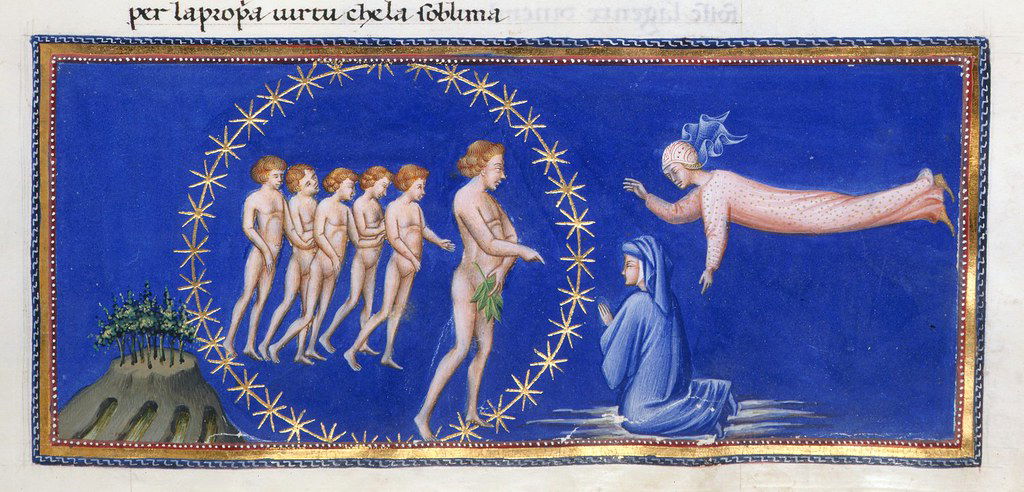 per la prop̃a uirtu che la soblima